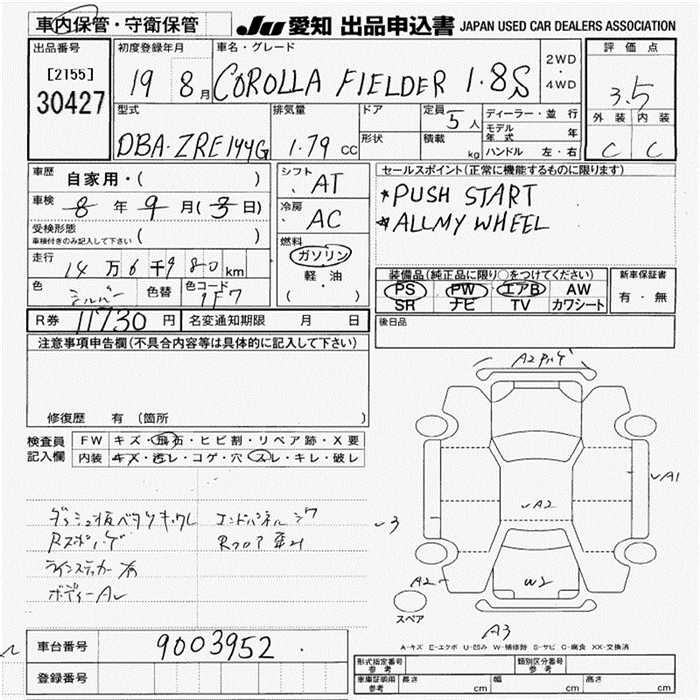 車内保管・守衛保管
JU 愛知 出品申込書 JAPAN USED CAR DEALERS ASSOCIATION
出品番号
[2155]
30427
初度登録年月
19 8月
車名・グレード
COROLLA FIELDER 1.8S
2WD
・
4WD
評価点
3.5
外装 内装
C C
型式
DBA-ZRE144G
排気量
1.79 CC
ドア
形状
定員 5人
積載 kg
ディーラー・並行
モデル年式 年
ハンドル 左・右
車歴 自家用・( )
車検 8年9月(3日)
受検形態
車検付きのみ記入して下さい ( )
走行 14万6千980km
色 シルバー 色替 色コード 1F7
シフト AT
冷房 AC
燃料
ガソリン
軽・油
( )
セールスポイント(正常に機能するものに限ります)
*PUSH START
*ALLMY WHEEL
装備品(純正品に限り○をつけてください)
PS PW エアB AW
SR ナビ TV カワシート
新車保証書
有・無
後日品
R券 11730円 名変通知期限 月 日
注意事項申告欄(不具合内容等は具体的に記入して下さい)
修復歴 有(箇所 )
検査員記入欄
FW キズ・飛石・ヒビ割・リペア跡・X要
内装 キズ・汚レ・コゲ・穴・スレ・キレ・破レ
ダッシュ板ベタツキ
エンドパネル
Rスポ
Rフロア
ラインステッカー有
ボディーA
3
A2
A1
A2
A2
W2
A3
スペア
A-キズ E-エクボ U-凹み W-補修跡 S-サビ C-腐食 XX-交換済
車台番号 9003952
登録番号
形式指定番号 参考
類別区分番号 参考
車庫証明用 参考 長さ cm 幅 cm 高さ cm